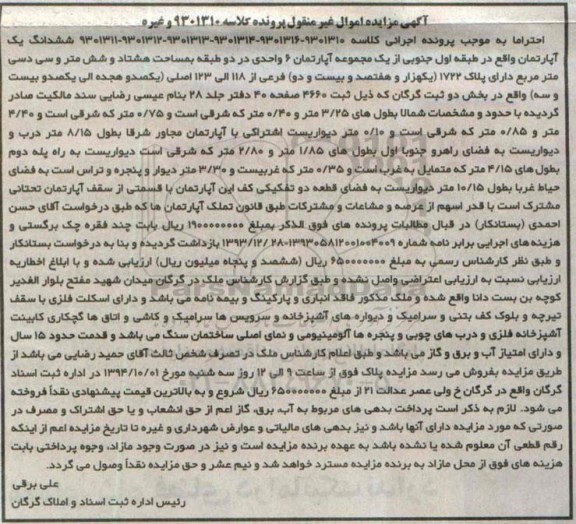 آگهی مزایده اموال غیر منقول پرونده کلاسه ۹۳۰۱۳۱۰ و غیره
احتراما به موجب پرونده اجرائی کلاسه ۹۳۰۱۳۱۰-۹۳۰۱۳۱۶-۹۳۰۱۳۱۴-۹۳۰۱۳۱۳-۹۳۰۱۳۱۲-۹۳۰۱۳۱۱ ششدانگ یک
آپارتمان واقع در طبقه اول جنوبی از یک مجموعه آپارتمان ۶ واحدی در دو طبقه بمساحت هشتاد و شش متر و سی دسی
متر مربع دارای پلاک ۱۷۲۲ (یکهزار و هفتصد و بیست و دو) فرعی از ۱۱۸ الی ۱۲۳ اصلی (یکصدو هجده الی یکصدو بیست
و سه) واقع در بخش دو ثبت گرگان که ذیل ثبت ۴۶۶۰ صفحه ۴۰ دفتر جلد ۲۸ بنام عیسی رضایی سند مالکیت صادر
گردیده با حدود و مشخصات شمالا بطول های ۳/۲۵ متر و ۰/۴۰ متر که شرقی است و ۰/۷۵ متر که شرقی است و ۴/۴۰
متر و ۰/۸۵ متر که شرقی است و ۰/۱۰ متر دیواریست اشتراکی با آپارتمان مجاور شرقا بطول ۸/۱۵ متر درب و
دیواریست به فضای راهرو جنوبا اول بطول های ۱/۸۵ متر و ۲/۸۰ متر که شرقی است دیواریست به راه پله دوم
بطول های ۴/۱۵ متر که متمایل به غرب است و ۰/۳۵ متر که غربیست و ۳/۳۰ متر دیوار و پنجره و تراس است به فضای
حیاط غربا بطول ۱۰/۱۵ متر دیواریست به فضای قطعه دو تفکیکی کف این آپارتمان با قسمتی از سقف آپارتمان تحتانی
مشترک است با قدر اسهم از عرصه و مشاعات و مشترکات طبق قانون تملک آپارتمان ها که طبق درخواست آقای حسن
احمدی (بستانکار) در قبال مطالبات پرونده های فوق الذکر بمبلغ ۱۹۰۰۰۰۰۰۰۰ ریال بابت چند فقره چک برگشتی و
هزینه های اجرایی برابر نامه شماره ۱۳۹۳۰۵۸۱۲۰۰۱۰۰۴۰۰۹-۱۳۹۳/۱۲/۲۸ بازداشت گردیده و بنا به درخواست بستانکار
و طبق نظر کارشناس رسمی به مبلغ ۶۵۰۰۰۰۰۰۰ ریال (ششصد و پنجاه میلیون ریال) ارزیابی شده و با ابلاغ اخطاریه
ارزیابی نسبت به ارزیابی اعتراضی واصل نشده و طبق گزارش کارشناس ملک در گرگان میدان شهید مفتح بلوار الغدیر
کوچه بن بست دانا واقع شده و ملک مذکور فاقد انباری و پارکینگ و بیمه نامه می باشد و دارای اسکلت فلزی با سقف
تیرچه و بلوک کف بتنی و سرامیک و دیواره های آشپزخانه و سرویس ها سرامیک و کاشی و اتاق ها گچکاری کابینت
آشپزخانه فلزی و درب های چوبی و پنجره ها آلومینیومی و نمای اصلی ساختمان سنگ می باشد و قدمت حدود ۱۵ سال
و دارای امتیاز آب و برق و گاز می باشد و طبق اعلام کارشناس ملک در تصرف شخص ثالث آقای حمید رضایی می باشد از
طریق مزایده بفروش می رسد مزایده پلاک فوق از ساعت ۹ الی ۱۲ روز سه شنبه مورخ ۱۳۹۴/۱۰/۰۱ در اداره ثبت اسناد
گرگان واقع در گرگان خ ولی عصر عدالت ۲۱ از مبلغ ۶۵۰۰۰۰۰۰۰ ریال شروع و به بالاترین قیمت پیشنهادی نقداً فروخته
می شود. لازم به ذکر است پرداخت بدهی های مربوطه به آب، برق، گاز اعم از حق انشعاب و یا حق اشتراک و مصرف در
صورتی که مورد مزایده دارای آنها باشد و نیز بدهی های مالیاتی و عوارض شهرداری و غیره تا تاریخ مزایده اعم از اینکه
رقم قطعی آن معلوم شده یا نشده باشد به عهده برنده مزایده است و نیز در صورت وجود مازاد، وجوه پرداختی بابت
هزینه های فوق از محل مازاد به برنده مزایده مسترد خواهد شد و نیم عشر و حق مزایده نقداً وصول می گردد.
علی برقی
رئیس اداره ثبت اسناد و املاک گرگان